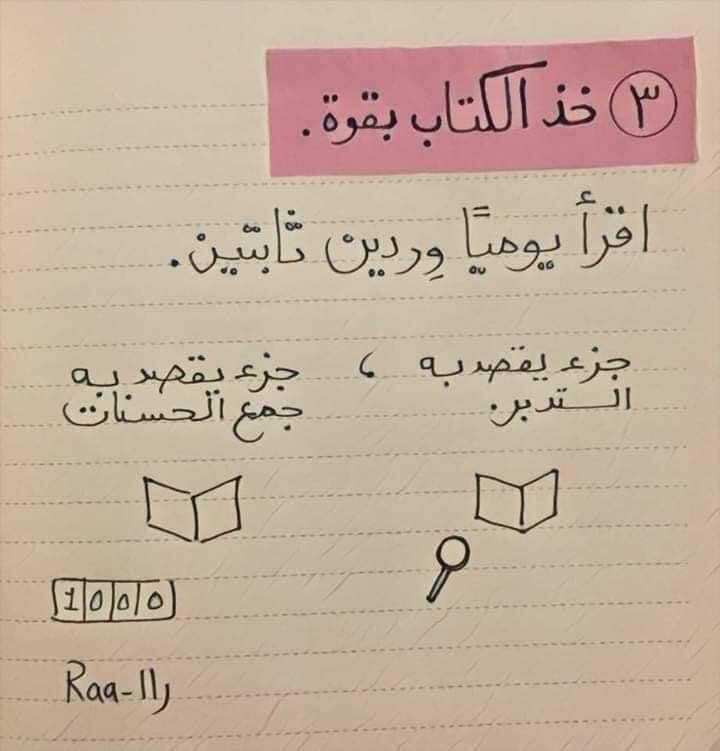 ٣ خذ الكتاب بقوة.
اقرأ يوميًا وِردين ثابتين.
جزء يقصد به ، جزء يقصد به
التدبر. جمع الحسنات
1000
Raa-11ر